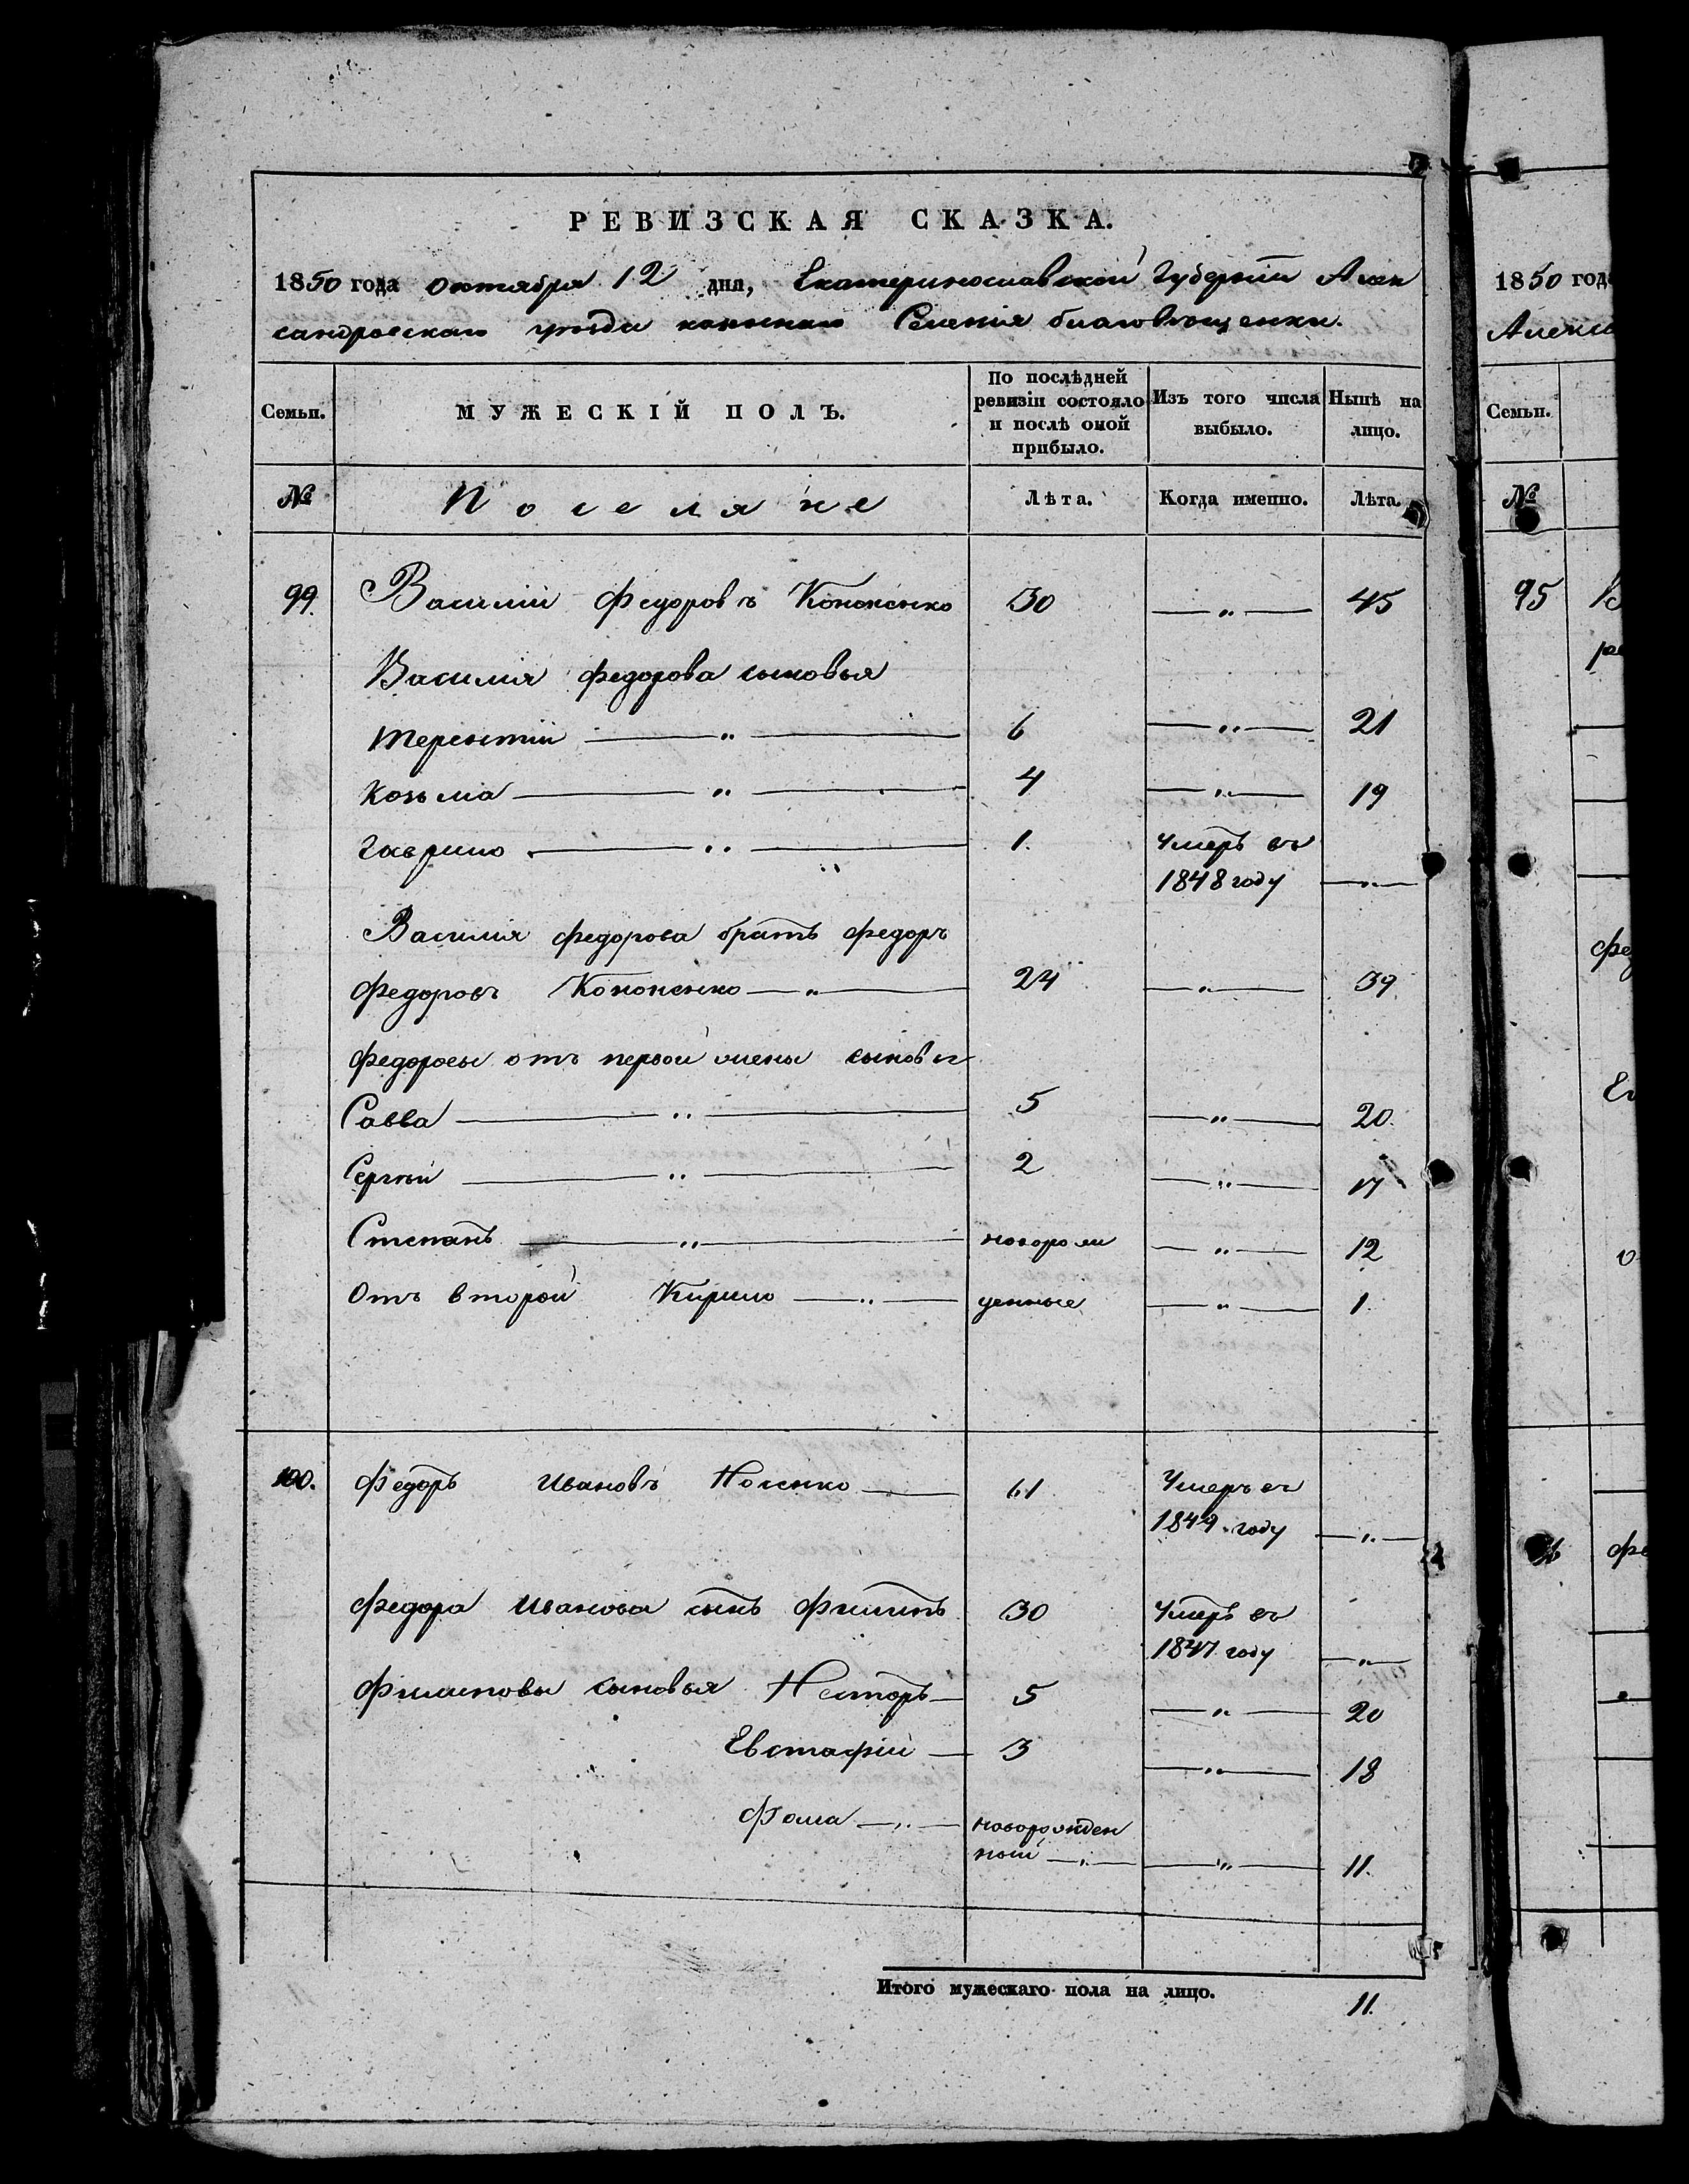 РЕВИЗСКАЯ СКАЗКА.
1850 года октября 12 дня, Екатеринославской Губерніи Алек
сандровскаго уѣзда казеннаго Селенія благовѣщенки.
Семьи.
МУЖЕСКІЙ ПОЛЪ.
По послѣдней ревизіи состояло и послѣ оной прибыло.
Изъ того числа выбыло.
Нынѣ на лицо.
№
Поселяне
Лѣта.
Когда именно.
Лѣта.
99. Василій Федоровъ Кононенко 30 — „ — 45
Василія федорова сыновья
терентій — „ — 6 — „ — 21
козьма — „ — 4 — „ — 19
гаврило — „ — 1. Умеръ въ
1848 году — „ —
Василия федорова братъ федоръ
федоровъ Кононенко — „ — 24 — „ — 39
федоровы отъ первой жены сыновья
Савва — „ — 5 — „ — 20.
Сергѣй — „ — 2 — „ — 17
Степанъ — „ — новорож — „ — 12
Отъ второй Кирило — „ — денные — „ — 1.
100. федоръ Ивановъ Носенко — 61 Умеръ въ
1849 году — „ —
федора Иванова сынъ Филипъ 30 Умеръ въ
1847 году — „ —
Филиповы сыновья Несторъ — 5 — „ — 20
Евстафій — 3 — „ — 18
Фома — „ — новорожден
ный — „ — — „ — 11.
Итого мужескаго пола на лицо.
11.
1850 год
Алекса
Семьи.
№
95
В
фед
Ег
фе